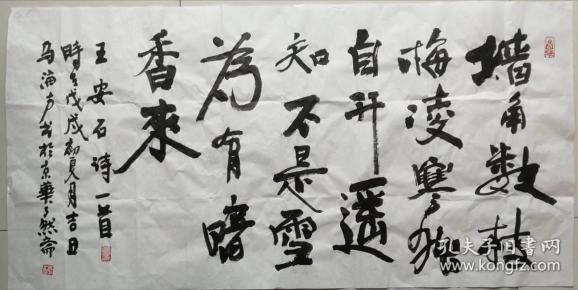 墙角数枝
梅凌寒独
自开遥
知不是雪
为有暗
香来
王安石诗一首
时在戊戌初夏月吉日
马海方书于京华了然斋
孔夫子旧书网
kongfz.com